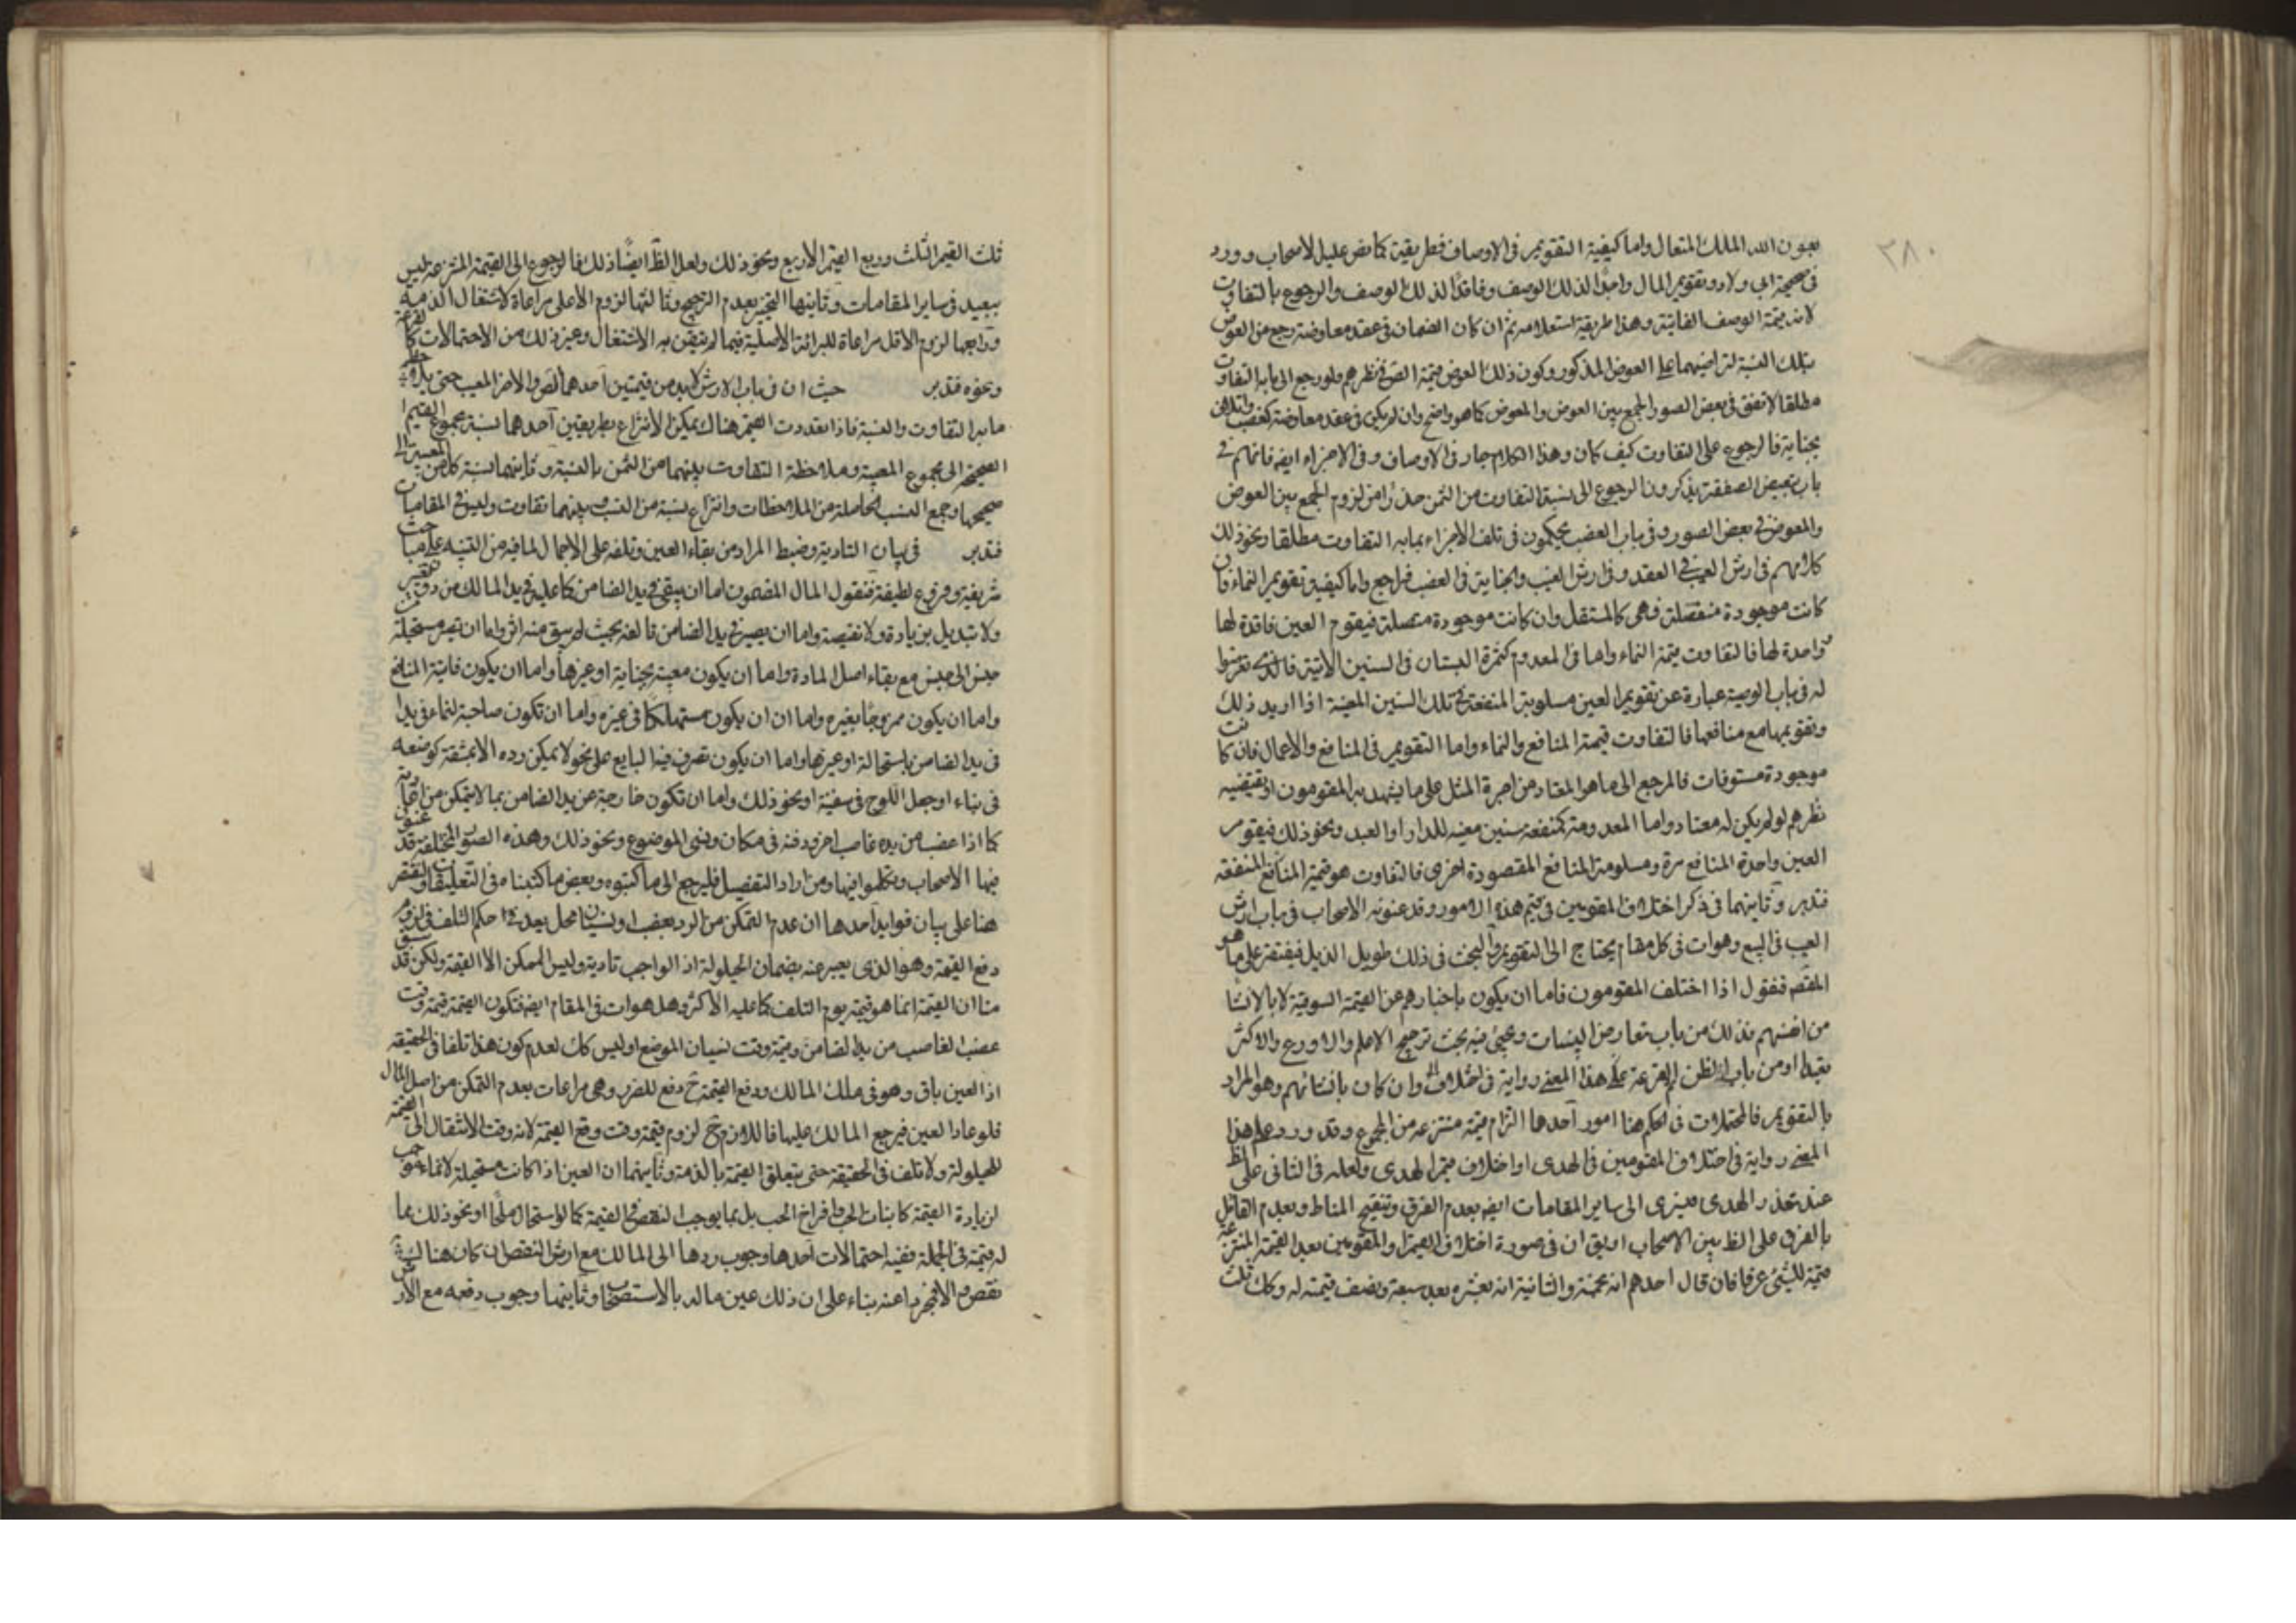 ٣٨٠
بعون الله الملك المتعال واما كيفية التقويم في الاوصاف فطريقية كما نص عليه الاصحاب وورد
في صحيحة ابي ولاد وتقويم المال واجدًا لذلك الوصف وفاقدًا لذلك الوصف والرجوع بالتفاوت
لانه قيمة الوصف الفائتة وهذا طريقة استعلامه ثم ان كان الضمان في عقد معاوضة رجع من العوض
بتلك النسبة لتراضيهما على العوض المذكور وكون ذلك العوض قيمة الصحيح في نظرهم ولو رجع الى ما به التفاوت
مطلقا لاتفق في بعض الصور الجمع بين العوض والمعوض كما هو واضح وان لم يكن في عقد معاوضة كغصب واتلاف
بجناية فالرجوع على التفاوت كيف كان وهذا الكلام جار في الاوصاف وفي الاجزاء ايضا فانهم في
باب تبعيض الصفقة يذكرون الرجوع الى نسبة التفاوت من الثمن حذرًا من لزوم الجمع بين العوض
والمعوض في بعض الصور وفي باب الغصب يحكمون في تلف الاجزاء بما به التفاوت مطلقا ونحو ذلك
كلامهم في ارش العيب في العقد وفي ارش العيب والجناية في الغصب فراجع واما كيفية تقويم النماء فان
كانت موجودة منفصلة فهي كالمستقل وان كانت موجودة متصلة فيقوم العين فاقدة لها
وواجدة لها فالتفاوت قيمة النماء واما في المعدوم كثمرة البستان في السنين الآتية فالذي تعرضوا
له في باب الوصية عبارة عن تقويم العين مسلوبة المنفعة في تلك السنين المعينة اذا اريد ذلك
وتقويمها مع منافعها فالتفاوت قيمة المنافع والنماء واما التقويم في المنافع والاعمال فان كانت
موجودة مستوفات فالمرجع الى ما هو المعتاد من اجرة المثل على ما يشهد به المقومون او يقتضيه
نظرهم لو لم يكن له معتاد واما المعدومة كمنفعة سنين معينة للدار او العبد ونحو ذلك فيقوم
العين واجدة المنافع مرة ومسلومة المنافع المقصودة اخرى فالتفاوت هو قيمة المنافع المنفقة
فتدبر وثانيهما في ذكر اختلاف المقومين في قيم هذه الامور وقد عنونه الاصحاب في باب ارش
العيب في البيع وهوات في كل مقام يحتاج الى التقويم والبحث في ذلك طويل الذيل فيقتصر على ما هو
المقصد فنقول اذا اختلف المقومون فاما ان يكون باخبارهم عن القيمة السوقية لا بالانشاء
من انفسهم فذلك من باب تعارض البينات ويجئ فيه بحث ترجيح الاعلم والاورع والاكثر
تعبدا او من باب الظن القرعة على هذا المعنى رواية في اختلاف وان كان بانشائهم وهو المراد
بالتقويم فالمحتملات في الحكم هنا امور احدها التزام قيمة منتزعة من المجموع وقد ورد على هذا
المعنى رواية في اختلاف المقومين في الهدى او اختلاف قيم الهدى ولعله في الثاني على الظ
عند تعذر الهدى فيسرى الى ساير المقامات ايضا بعدم الفرق وتنقيح المناط وبعدم القائل
بالفرق على الظ بين الاصحاب او يق ان في صورة اختلاف القيم والمقومين يعد القيمة المنتزعة
قيمة للشئ عرفا فان قال احدهم انه بخمسة والثانية انه بعشرة يعد سبعة ونصف قيمة له وكك ثلث
ثلث القيم الثلث وربع القيم الاربع ونحو ذلك ولعل الظ ايضًا ذلك فالرجوع الى القيمة المنتزعة ليس
ببعيد في ساير المقامات وثانيها التخيير بعدم الترجيح وثالثها لزوم الاعلى مراعاة لاشتغال الذمة
ورابعها لزوم الاقل مراعاة للبرائة الاصلية فيما لم يتيقن به الاشتغال وغير ذلك من الاحتمالات كالقرعة
ونحوه فتدبر حيث ان في باب الارش لابد من قيمتين احدهما الص والاخر المعيب حتى يلاحظ
ما به التفاوت والنسبة فاذا تعددت القيم هناك يمكن الانتزاع بطريقين احدهما نسبة مجموع القيم
الصحيحة الى مجموع المعيبة وملاحظة التفاوت بينهما من الثمن بالنسبة وثانيهما نسبة كل من المعيب الى
صحيحها وجمع النسب الحاصلة من الملاحظات وانتزاع نسبة من النسب بينهما تفاوت وليس في المقامات
فتدبر في بيان التادية وضبط المراد من بقاء العين وتلفه على الاجمال لما فيه من التنبيه على مباحث
شريفة وفروع لطيفة فنقول المال المضمون اما ان يبقى في يد الضامن كما عليه في يد المالك من دون تغيير
ولا تبديل بزيادة ولا نقيصة واما ان يصير في يد الضامن تالفه بحيث لم يبق منه اثر واما ان تصير مستحيلة من
جنس الى جنس مع بقاء اصل المادة واما ان يكون معيبة بجناية او غيرها واما ان يكون فائتة المنافع
واما ان يكون ممزوجًا بغيره واما ان ان يكون مستهلكًا في غيره واما ان تكون صاحبة لنماء في يد
في يد الضامن باستحالة او غيرها واما ان يكون تصرف فيه البايع على نحو لا يمكن رده الا بمشقة كوضعه
في بناء او جعل اللوح في سفينة او نحو ذلك واما ان تكون خارجة عن يد الضامن بما لا يتمكن من اتيانه
كما اذا غصب من يده غاصب اخر ودفنه في مكان ونسى الموضع ونحو ذلك وهذه الصور المختلفة قد عنون
فيها الاصحاب وتكلموا فيها ومن اراد التفصيل فليرجع الى ما كتبوه وبعض ما كتبناه في التعليقات ونقتصر
هنا على بيان فوايد احدها ان عدم التمكن من الرد بغصب او نسيان محل يعد في حكم التلف في لزوم
دفع القيمة وهو الذى يعبر عنه بضمان الحيلولة اذ الواجب تادية وليس الممكن الا القيمة ولكن قد سبق
منا ان القيمة انما هو قيمة يوم التلف كما عليه الاكثر وهل هوات في المقام ايضا فتكون القيمة قيمة وقت
غصب الغاصب من يد الضامن وقيمة وقت نسيان الموضع او ليس كك لعدم كون هذا تلفا في الحقيقة
اذ العين باق وهو في ملك المالك ودفع القيمة ح دفع للضرر وهى مراعات بعدم التمكن من اصل المال
فلو عاد العين فيرجع المالك عليها فاللازم ح لزوم قيمة وقت دفع القيمة لانه وقت الانتقال الى القيمة
للحيلولة ولا تلف في الحقيقة حتى يتعلق القيمة بالذمة وثانيهما ان العين اذا كانت مستحيلة لانماء موجب
لزيادة القيمة كانبات الحب وافراخ الحب بل بما يوجب النقص في القيمة كما لو استحال ملحًا او نحو ذلك بما
له قيمة في الجملة ففيه احتمالات احدها وجوب ردها الى المالك مع ارش النقص ان كان هناك
نقص والا فمجردا عنه بناء على ان ذلك عين ماله بالاستصحاب وثانيهما وجوب دفعه مع الارش